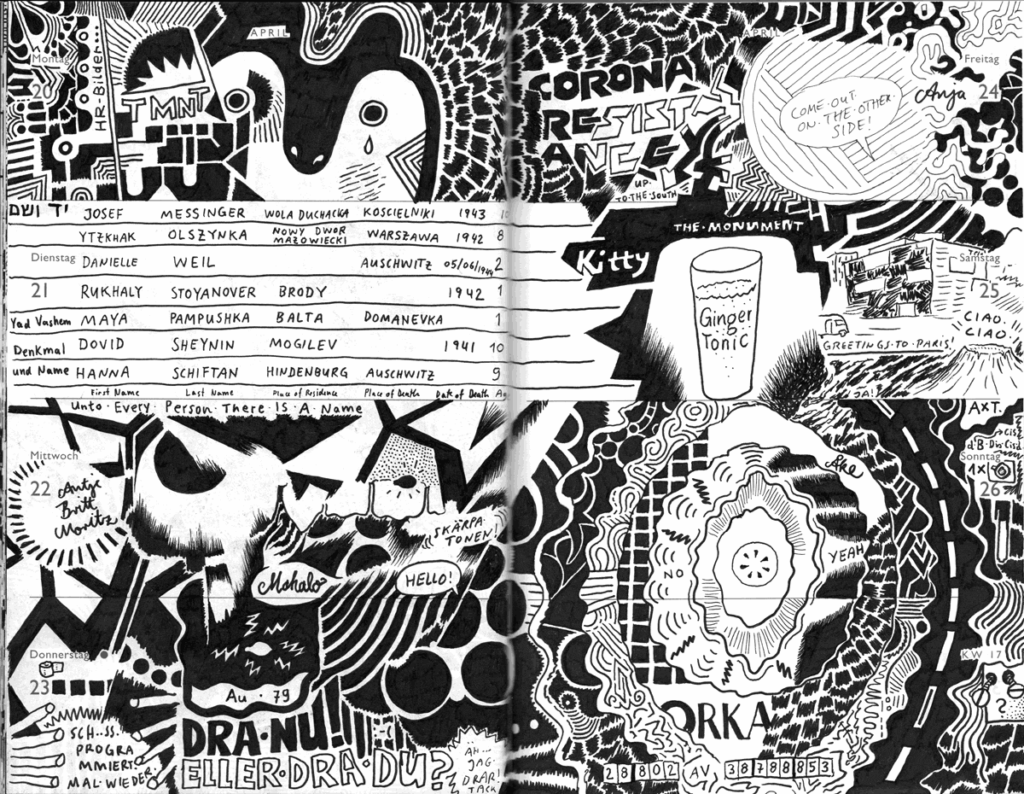 APRIL
Montag
20
HR-Bilder...
TMNT
יד ושם
JOSEF MESSINGER WOLA DUCHACKA KOSCIELNIKI 1943
YTZKHAK OLSZYNKA NOWY DWOR MAZOWIECKI WARSZAWA 1942 8
Dienstag
DANIELLE WEIL AUSCHWITZ 05/06/1944 2
21
RUKHALY STOYANOVER BRODY 1942 1
Yad Vashem
MAYA PAMPUSHKA BALTA DOMANEVKA 1
Denkmal
DOVID SHEYNIN MOGILEV 1941 10
und Name
HANNA SCHIFTAN HINDENBURG AUSCHWITZ 9
First Name Last Name Place of Residence Place of Death Date of Death
Unto · Every · Person · There · Is · A · Name
Mittwoch
22
Antje
Britt
Moritz
SKÄRPA·
TONEN!
Mshalo
HELLO!
Donnerstag
23
Au · 79
SCH...SS..
PROGRA
MMIERT.
MAL·WIEDER.
DRA·NU!
ELLER·DRA·DU?
ÄH...
JAG·
DRAR!
TACK
APRIL
Freitag
24
CORONA
RESIST
ANCEY
UP·
TO·THE·SOUTH
COME·OUT·
ON·THE·OTHER·
SIDE!
Anja
THE·MONUMENT
Kitty
Ginger
Tonic
Samstag
25
CIAO
CIAO
GREETINGS·TO·PARIS!
JA!
AXT.
Sonntag
1X
26
Ake
NO
YEAH
KW 17
?
ORKA
28802 AV 38788853